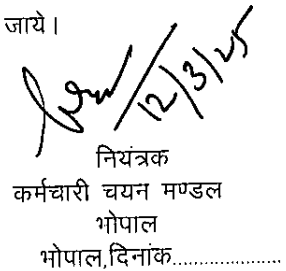 जाये।
12/3/25
नियंत्रक
कर्मचारी चयन मण्डल
भोपाल
भोपाल,दिनांक.....................